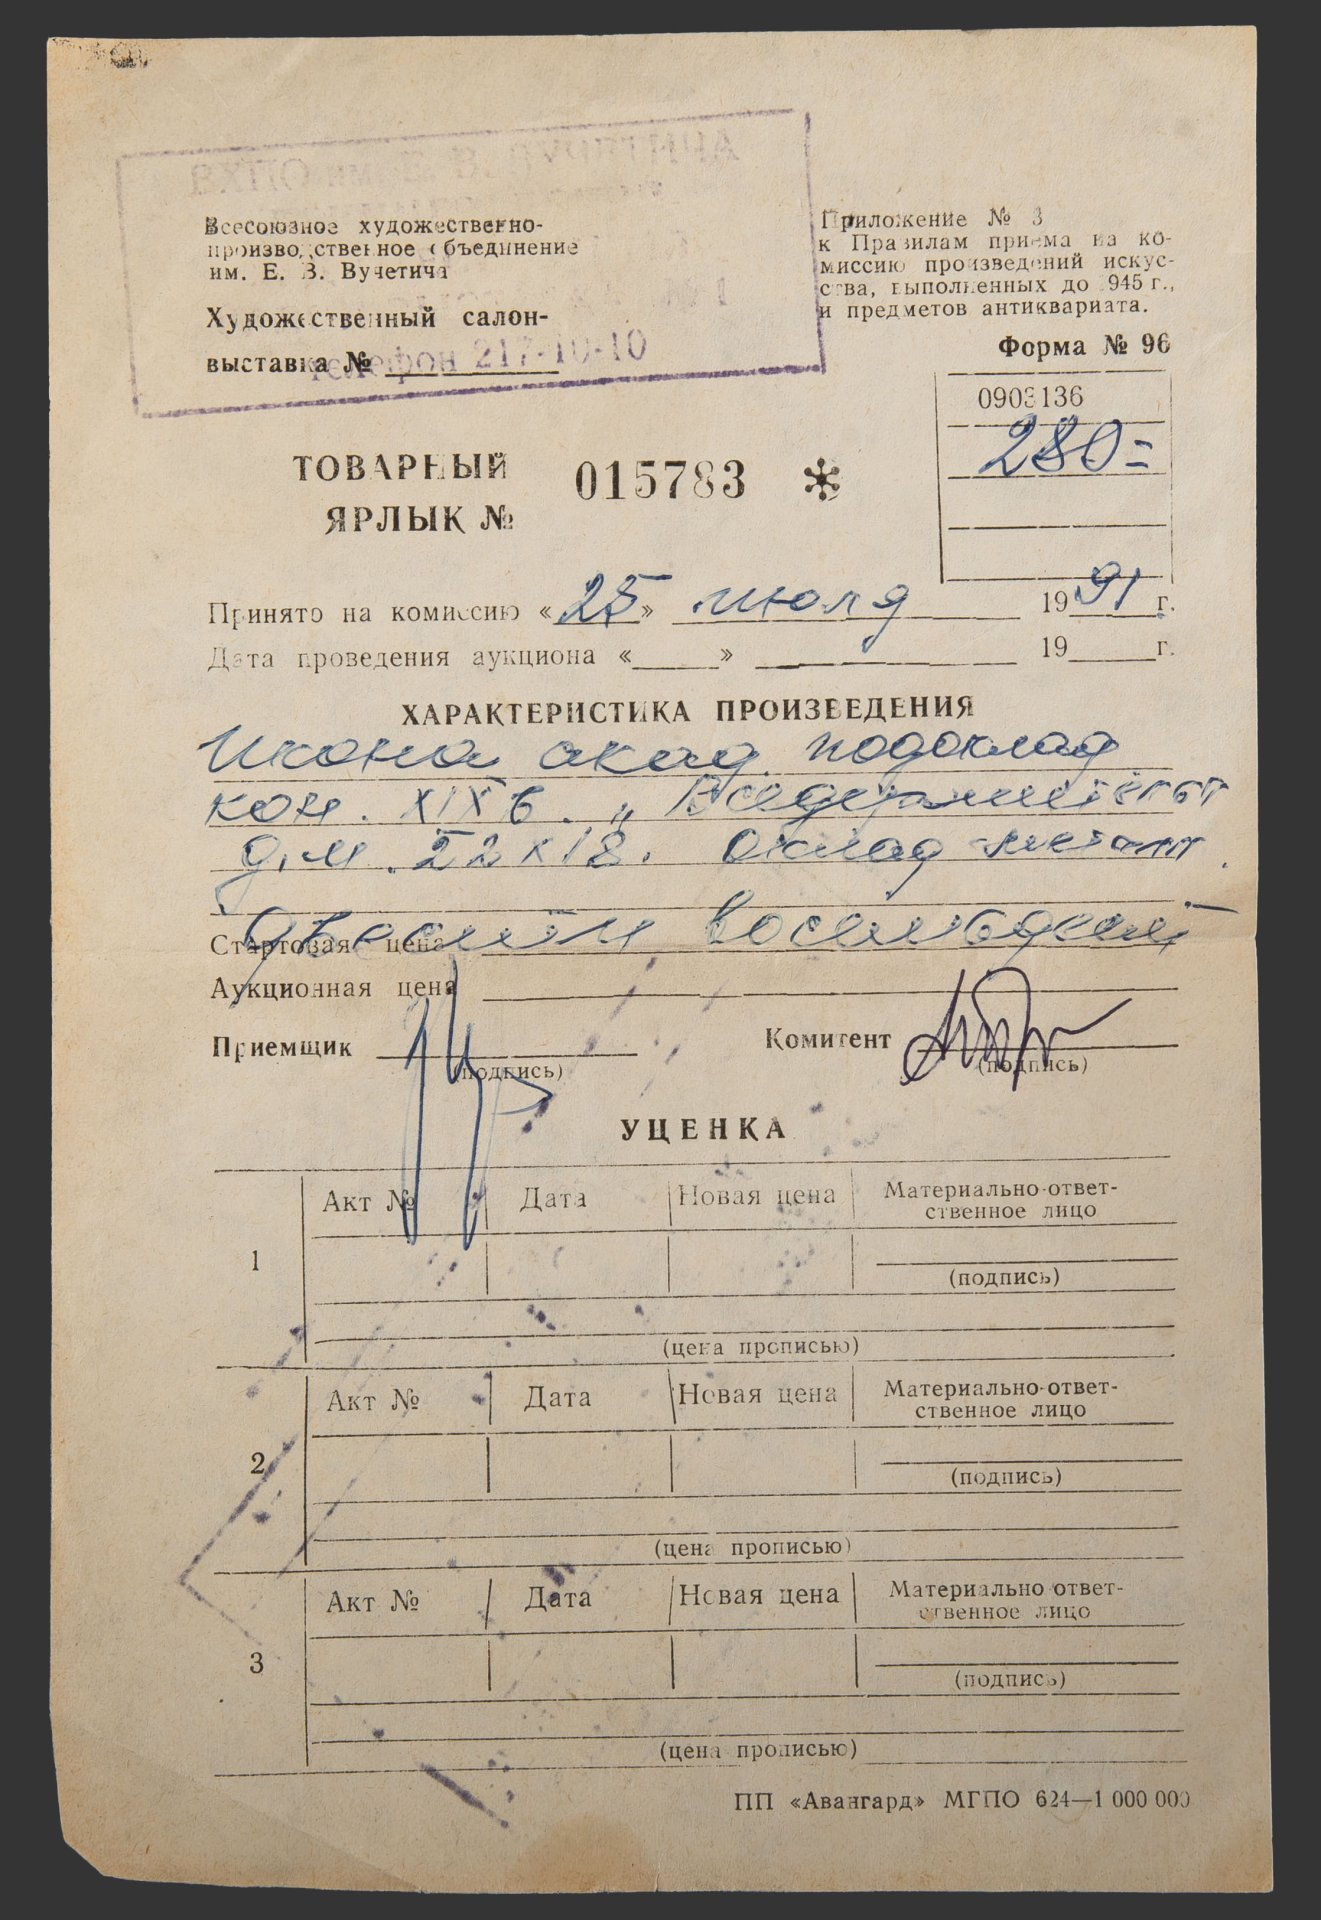 ВХПО им. Е. В. ВУЧЕТИЧА
Всесоюзное художественно-
производственное объединение
им. Е. В. Вучетича
Художественный салон-
выставка №
телефон 217-10-10
Приложение № 3
к Правилам приема на ко-
миссию произведений искус-
ства, выполненных до 1945 г.,
и предметов антиквариата.
Форма № 96
0903136
280=
ТОВАРНЫЙ
ЯРЛЫК №
015783 *
Принято на комиссию «25» июля 1991 г.
Дата проведения аукциона «____» ____ 19____г.
ХАРАКТЕРИСТИКА ПРОИЗВЕДЕНИЯ
Икона акад. подоклад
кон. XIX в. „Вседержитель"
д.м. 22x18. Оклад металл.
Стартовая цена Двести восемьдесят
Аукционная цена
Приемщик
(подпись)
Комитент
(подпись)
УЦЕНКА
1
Акт № Дата Новая цена Материально-ответ-
ственное лицо
(подпись)
(цена прописью)
2
Акт № Дата Новая цена Материально-ответ-
ственное лицо
(подпись)
(цена прописью)
3
Акт № Дата Новая цена Материально-ответ-
ственное лицо
(подпись)
(цена прописью)
ПП «Авангард» МГПО 624—1 000 000